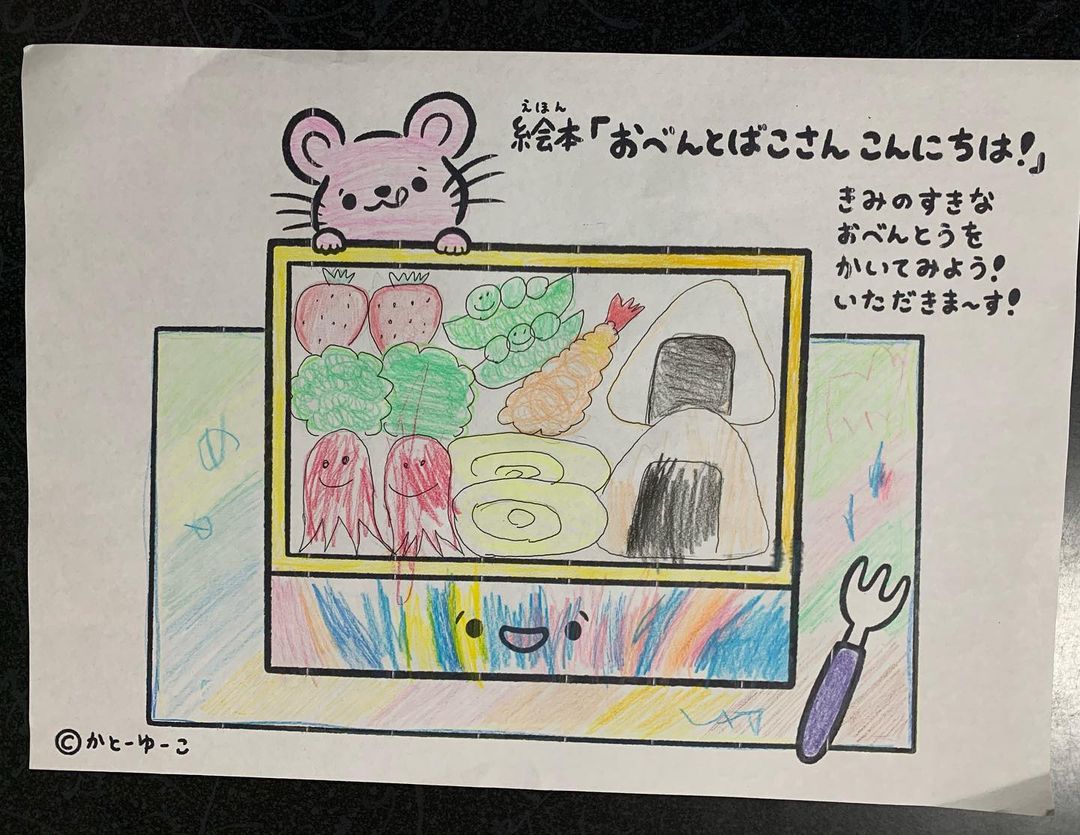 えほん
絵本「おべんとばこさん こんにちは!」
きみのすきな
おべんとうを
かいてみよう!
いただきま〜す!
©かとーゆーこ